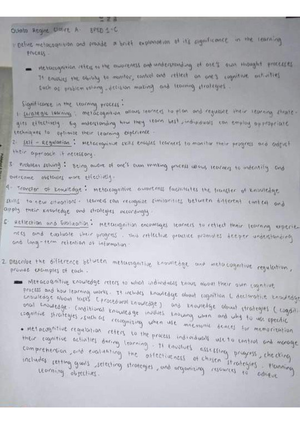 BPED 1-C
- Define metacognition and provide a brief explanation of its significance in the learning
process.
metacognition refers to the awareness and understanding of one's own thought processes.
It involves the ability to monitor, control and reflect on one's cognitive activities
such as problem solving, decision making and learning strategies.
Significance in the learning process:
1. Strategic learning: metacognition allows learners to plan and regulate their learning strate-
gies effectively. By understanding how they learn best, individuals can employ appropriate
techniques to optimize their learning experience.
2. Self-Regulation: metacognitive skills enable learners to monitor their progress and adjust
their approach if necessary.
3. Problem Solving: Being aware of one's own thinking process allows learners to identify and
overcome obstacles more effectively.
4. Transfer of Knowledge: metacognitive awareness facilitates the transfer of knowledge
skills to new situations. Learners can recognize similarities between different contexts and
apply their knowledge and strategies accordingly.
Reflection and Evaluation: metacognition encourages learners to reflect on their learning experien-
ces and evaluate their progress. This reflective practice promotes deeper understanding
and long-term retention of information.
2. Describe the difference between metacognitive knowledge and metacognitive regulation,
provide examples of each.
Metacognitive knowledge refers to what individuals know about their own cognitive
process and how learning works. It includes knowledge about cognition (declarative knowledge)
knowledge about tasks (procedural knowledge) and knowledge about strategies (condi-
tional knowledge). Conditional knowledge involves knowing when and why to use specific
cognitive strategies, such as recognizing when use mnemonic devices for memorization
• metacognitive regulation refers to the process individuals use to control and manage
their cognitive activities during learning. It involves assessing progress, checking
comprehension, and evaluating the effectiveness of chosen strategies. Planning
includes setting goals, selecting strategies, and organizing resources to achieve
learning objectives.